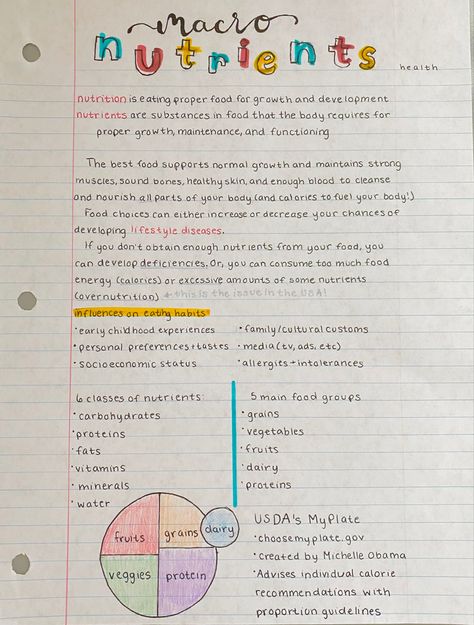 macro
nutrients
health
nutrition is eating proper food for growth and development
nutrients are substances in food that the body requires for
proper growth, maintenance, and functioning
The best food supports normal growth and maintains strong
muscles, sound bones, healthy skin, and enough blood to cleanse
and nourish all parts of your body (and calories to fuel your body!)
Food choices can either increase or decrease your chances of
developing lifestyle diseases.
If you don't obtain enough nutrients from your food, you
can develop deficiencies. Or, you can consume too much food
energy (calories) or excessive amounts of some nutrients
(overnutrition) ← this is the issue in the USA!
influences on eating habits
•early childhood experiences
•personal preferences+tastes
•socioeconomic status
•family/cultural customs
•media (tv, ads, etc)
•allergies+intolerances
6 classes of nutrients:
•carbohydrates
•proteins
•fats
•vitamins
•minerals
•water
5 main food groups
•grains
•vegetables
•fruits
•dairy
•proteins
fruits
grains
dairy
veggies
protein
USDA's MyPlate
•choosemyplate.gov
•Created by Michelle Obama
•Advises individual calorie
recommendations with
proportion guidelines